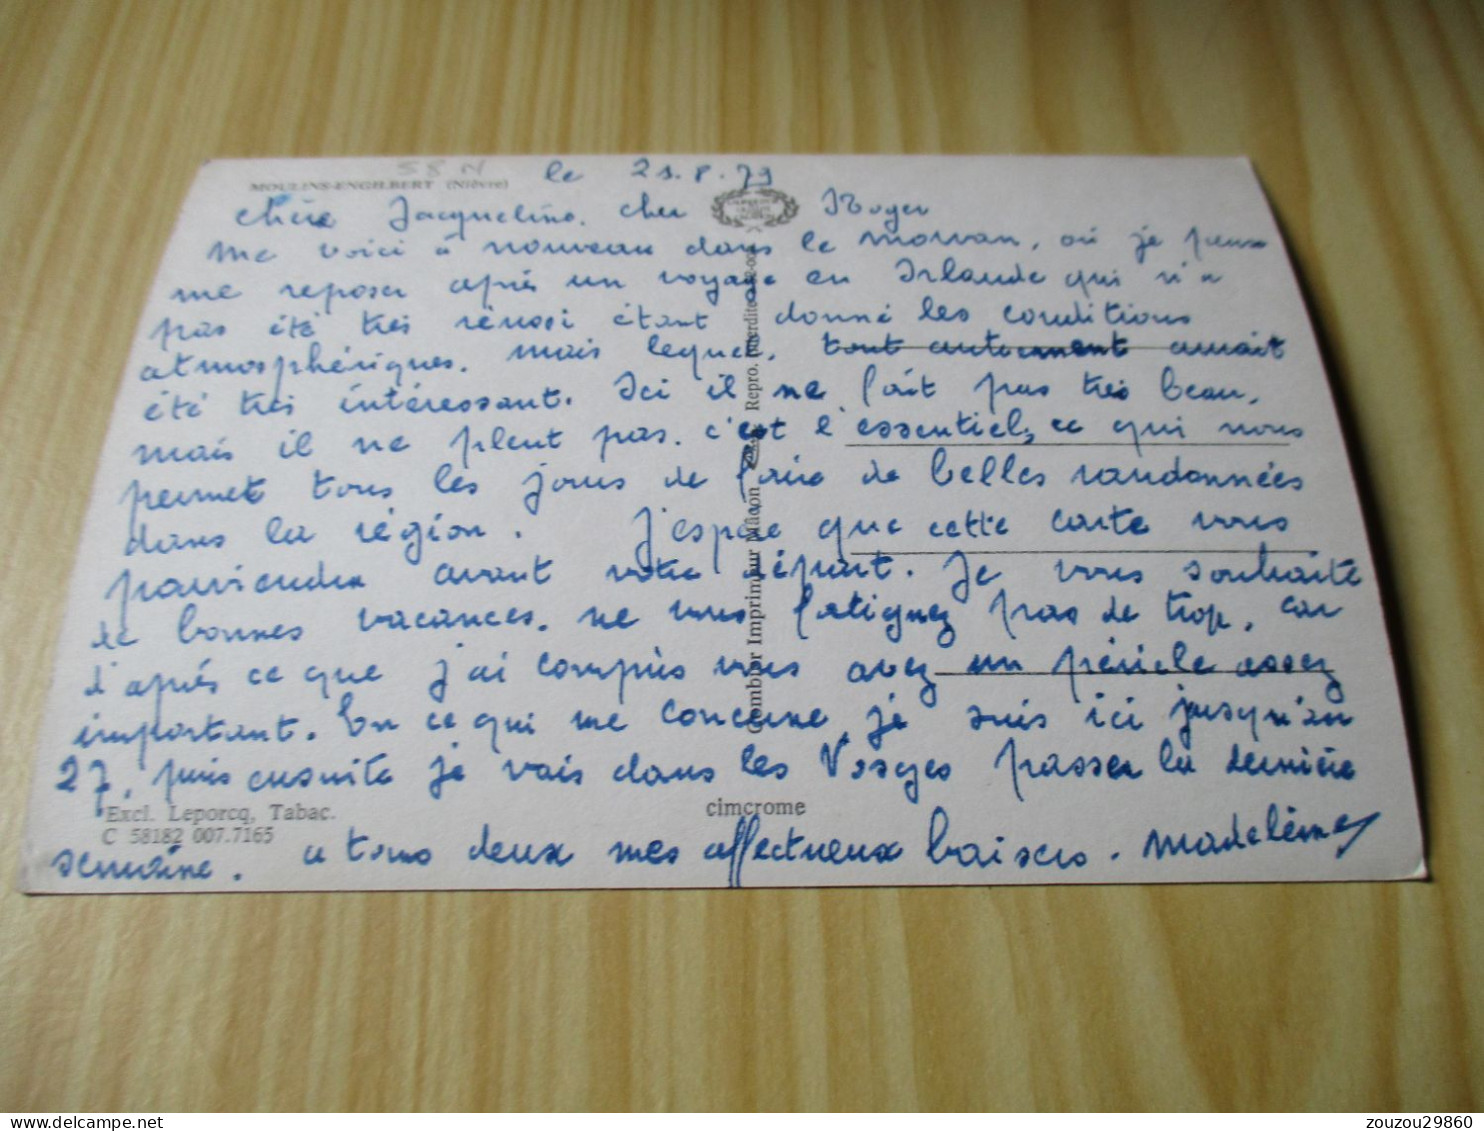 58 N
MOULINS-ENGILBERT (Nièvre)
le 21.8.79
chère Jacqueline. cher Roger
me voici à nouveau dans le Morvan, où je peux
me reposer après un voyage en Irlande qui n'a
pas été très réussi étant donné les conditions
atmosphériques. mais lequel, tout autrement aurait
été très intéressant. Ici il ne fait pas très beau,
mais il ne pleut pas. c'est l'essentiel, ce qui nous
permet tous les jours de faire de belles randonnées
dans la région. J'espère que cette carte vous
parviendra avant votre départ. Je vous souhaite
de bonnes vacances. ne vous fatiguez pas de trop, car
d'après ce que j'ai compris vous avez un périple assez
important. En ce qui me concerne je suis ici jusqu'au
27, puis ensuite je vais dans les Vosges passer la dernière
semaine. à tous deux mes affectueux baisers. Madeleine
Excl. Leporcq, Tabac.
C 58182 007.7165
cimcrome
Combier Imprimeur Mâcon
Repro. interdite
zouzou29860